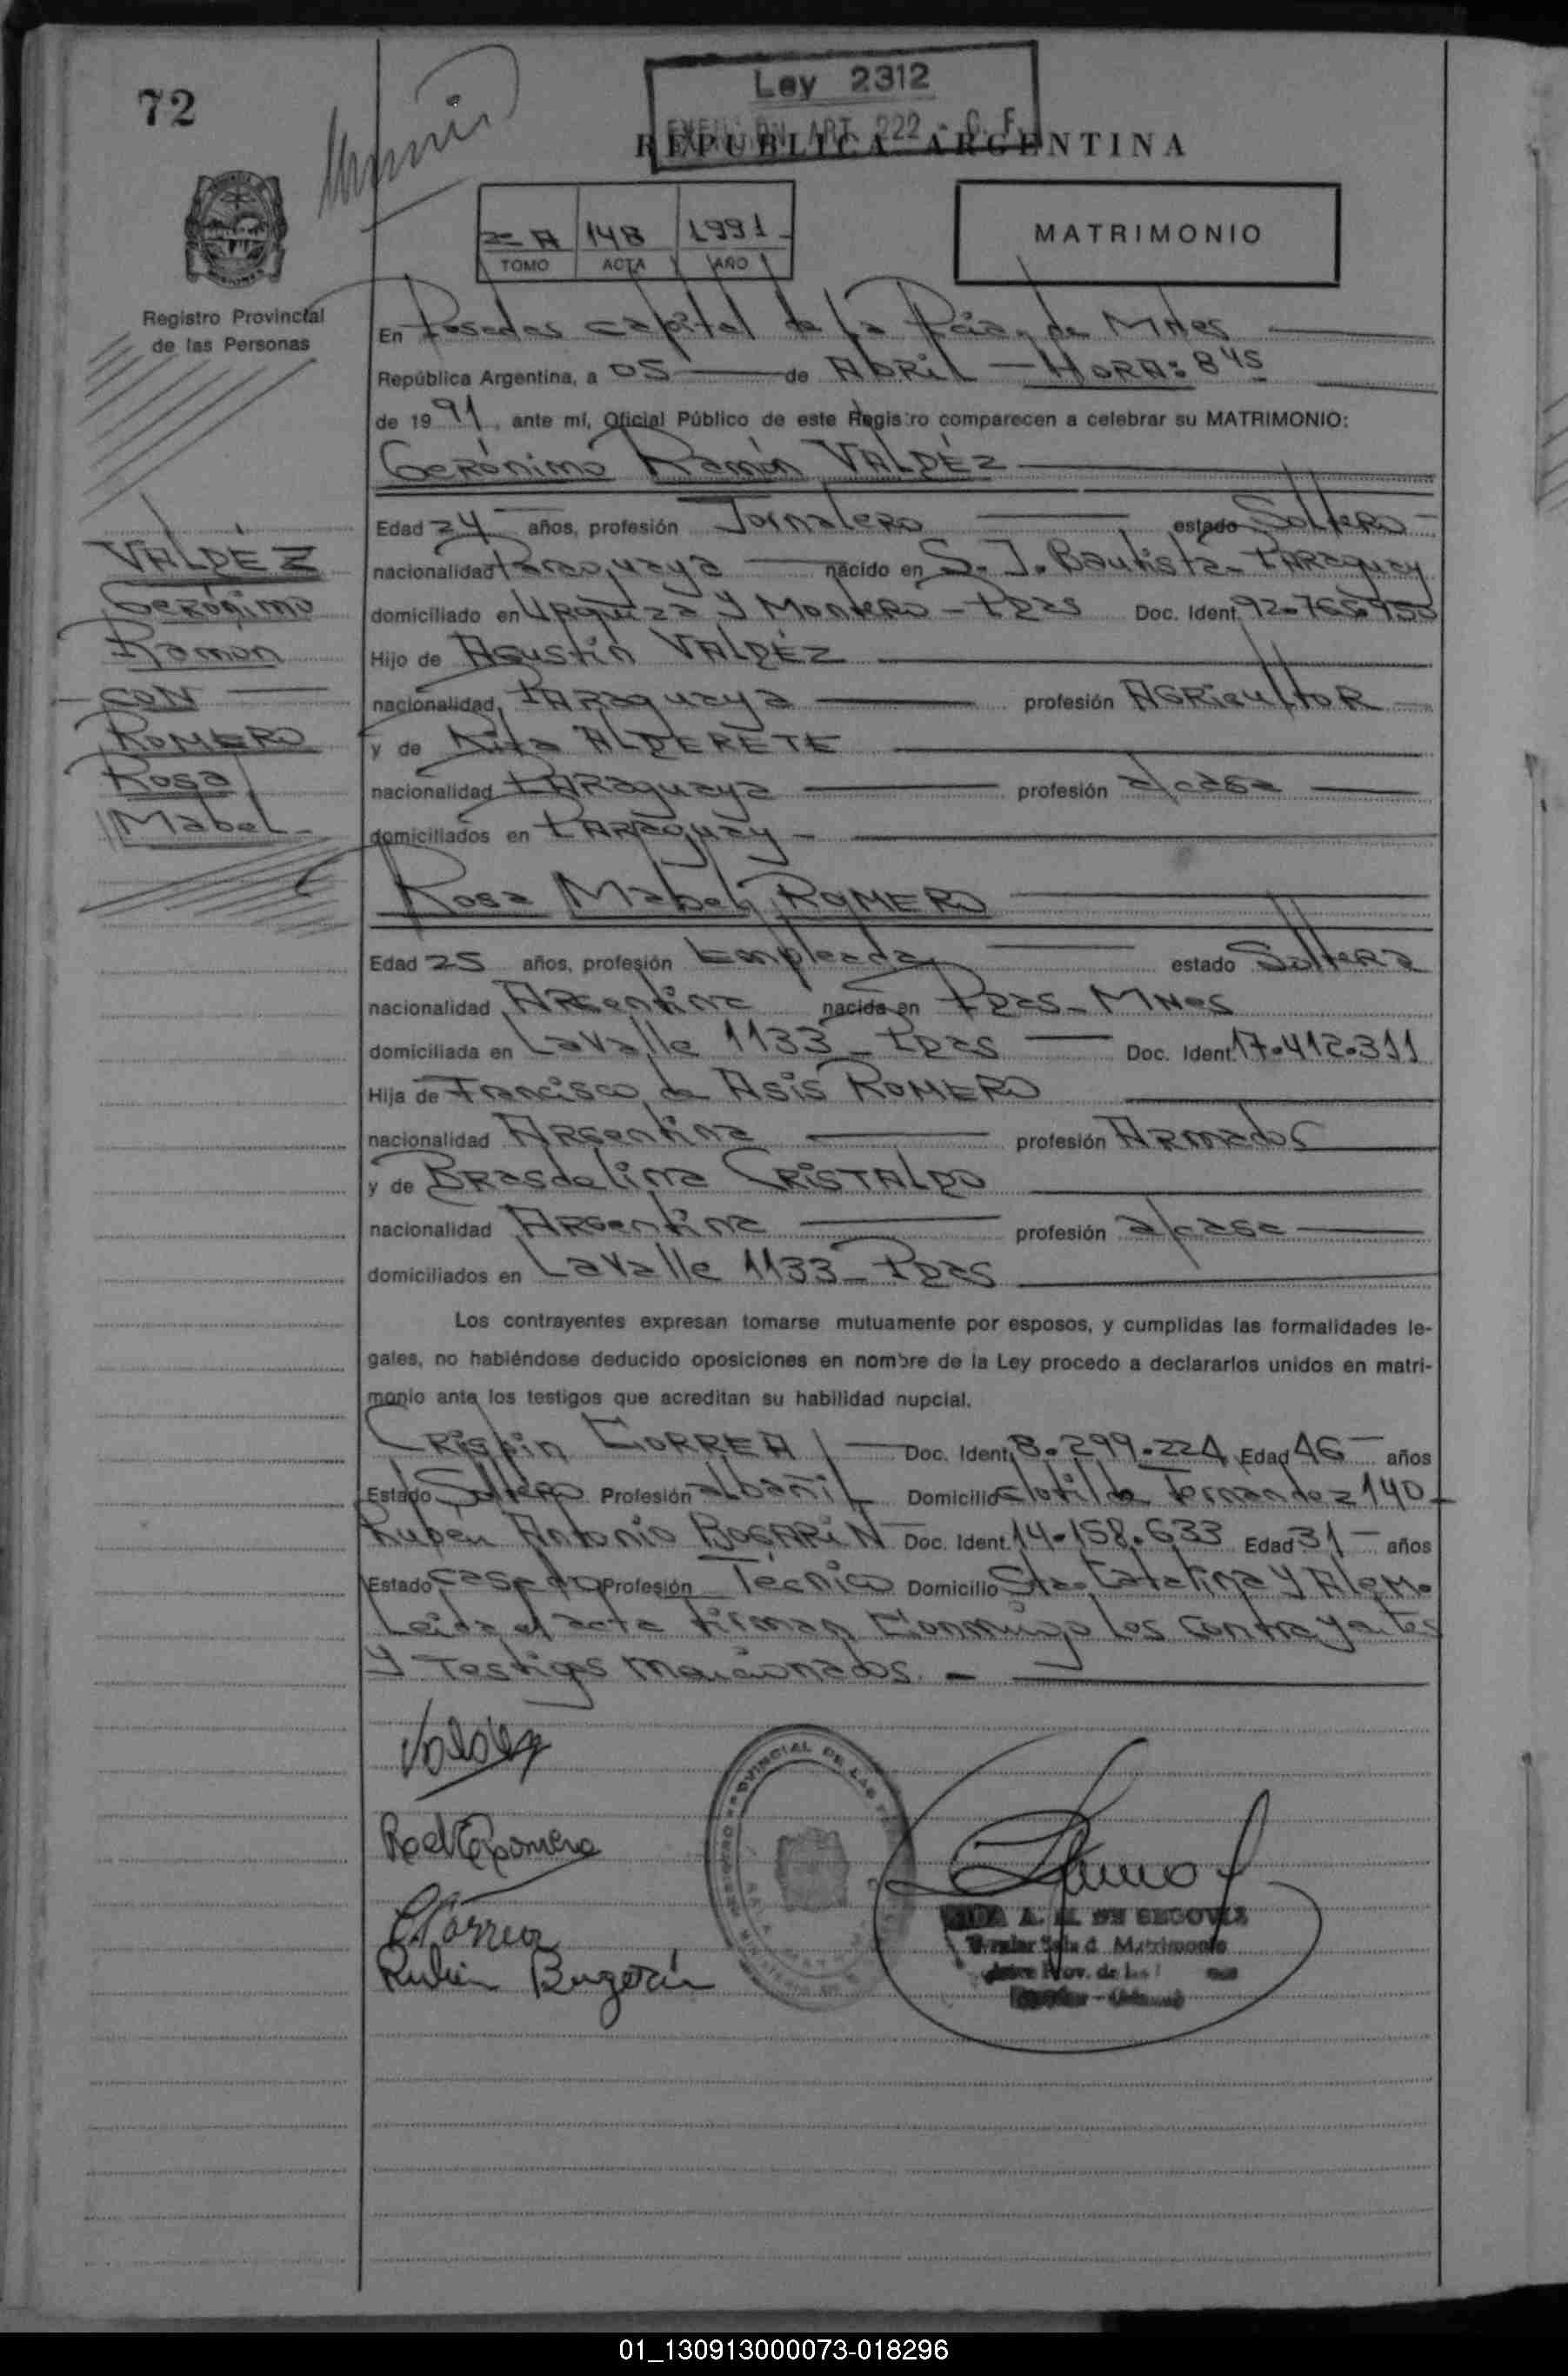 72
Ley 2312
ART. 222 - C. F.
REPUBLICA ARGENTINA
A 148 1991
TOMO ACTA AÑO
MATRIMONIO
Registro Provincial
de las Personas
En Posadas capital de la Pcia. de Mnes
República Argentina, a 05 de Abril - HORA: 8 45
de 1991, ante mí, Oficial Público de este Registro comparecen a celebrar su MATRIMONIO:
Gerónimo Ramón VALDÉZ
VALDÉZ
Gerónimo
Ramon
CON
ROMERO
Rosa
Mabel
Edad 24 años, profesión Jornalero estado Soltero
nacionalidad Paraguaya nacido en S. J. Bautista - Paraguay
domiciliado en Urquiza y Montero - Pdas Doc. Ident.
Hijo de Agustín VALDÉZ
nacionalidad Paraguaya profesión Agricultor
y de Rita ALDERETE
nacionalidad Paraguaya profesión a/casa
domiciliados en Paraguay -
Rosa Mabel ROMERO
Edad 25 años, profesión Empleada estado Soltera
nacionalidad Argentina nacida en Pdas - Mnes
domiciliada en Lavalle 1133 - Pdas Doc. Ident. 17.412.311
Hija de Francisco de Asis ROMERO
nacionalidad Argentina profesión Armador
y de Brasdelina CRISTALDO
nacionalidad Argentina profesión a/casa
domiciliados en Lavalle 1133 - Pdas
Los contrayentes expresan tomarse mutuamente por esposos, y cumplidas las formalidades le-
gales, no habiéndose deducido oposiciones en nombre de la Ley procedo a declararlos unidos en matri-
monio ante los testigos que acreditan su habilidad nupcial.
Crispin CORREA Doc. Ident. 8.299.224 Edad 46 años
Estado Soltero Profesión albañil Domicilio Clotilde Fernandez 140 -
Rubén Antonio BOGARIN Doc. Ident. 14.158.633 Edad 31 años
Estado casado Profesión Técnico Domicilio Sta. Catalina y Alem.
Leida el acta firman Conmigo los contrayentes
y Testigos mencionados. -
Valdéz
Romero
C Correa
Rubén Bogarín
REGISTRO PROVINCIAL DE LAS
A. M. DE SEGOVIA
Matrimonio
Prov. de las
01_130913000073-018296